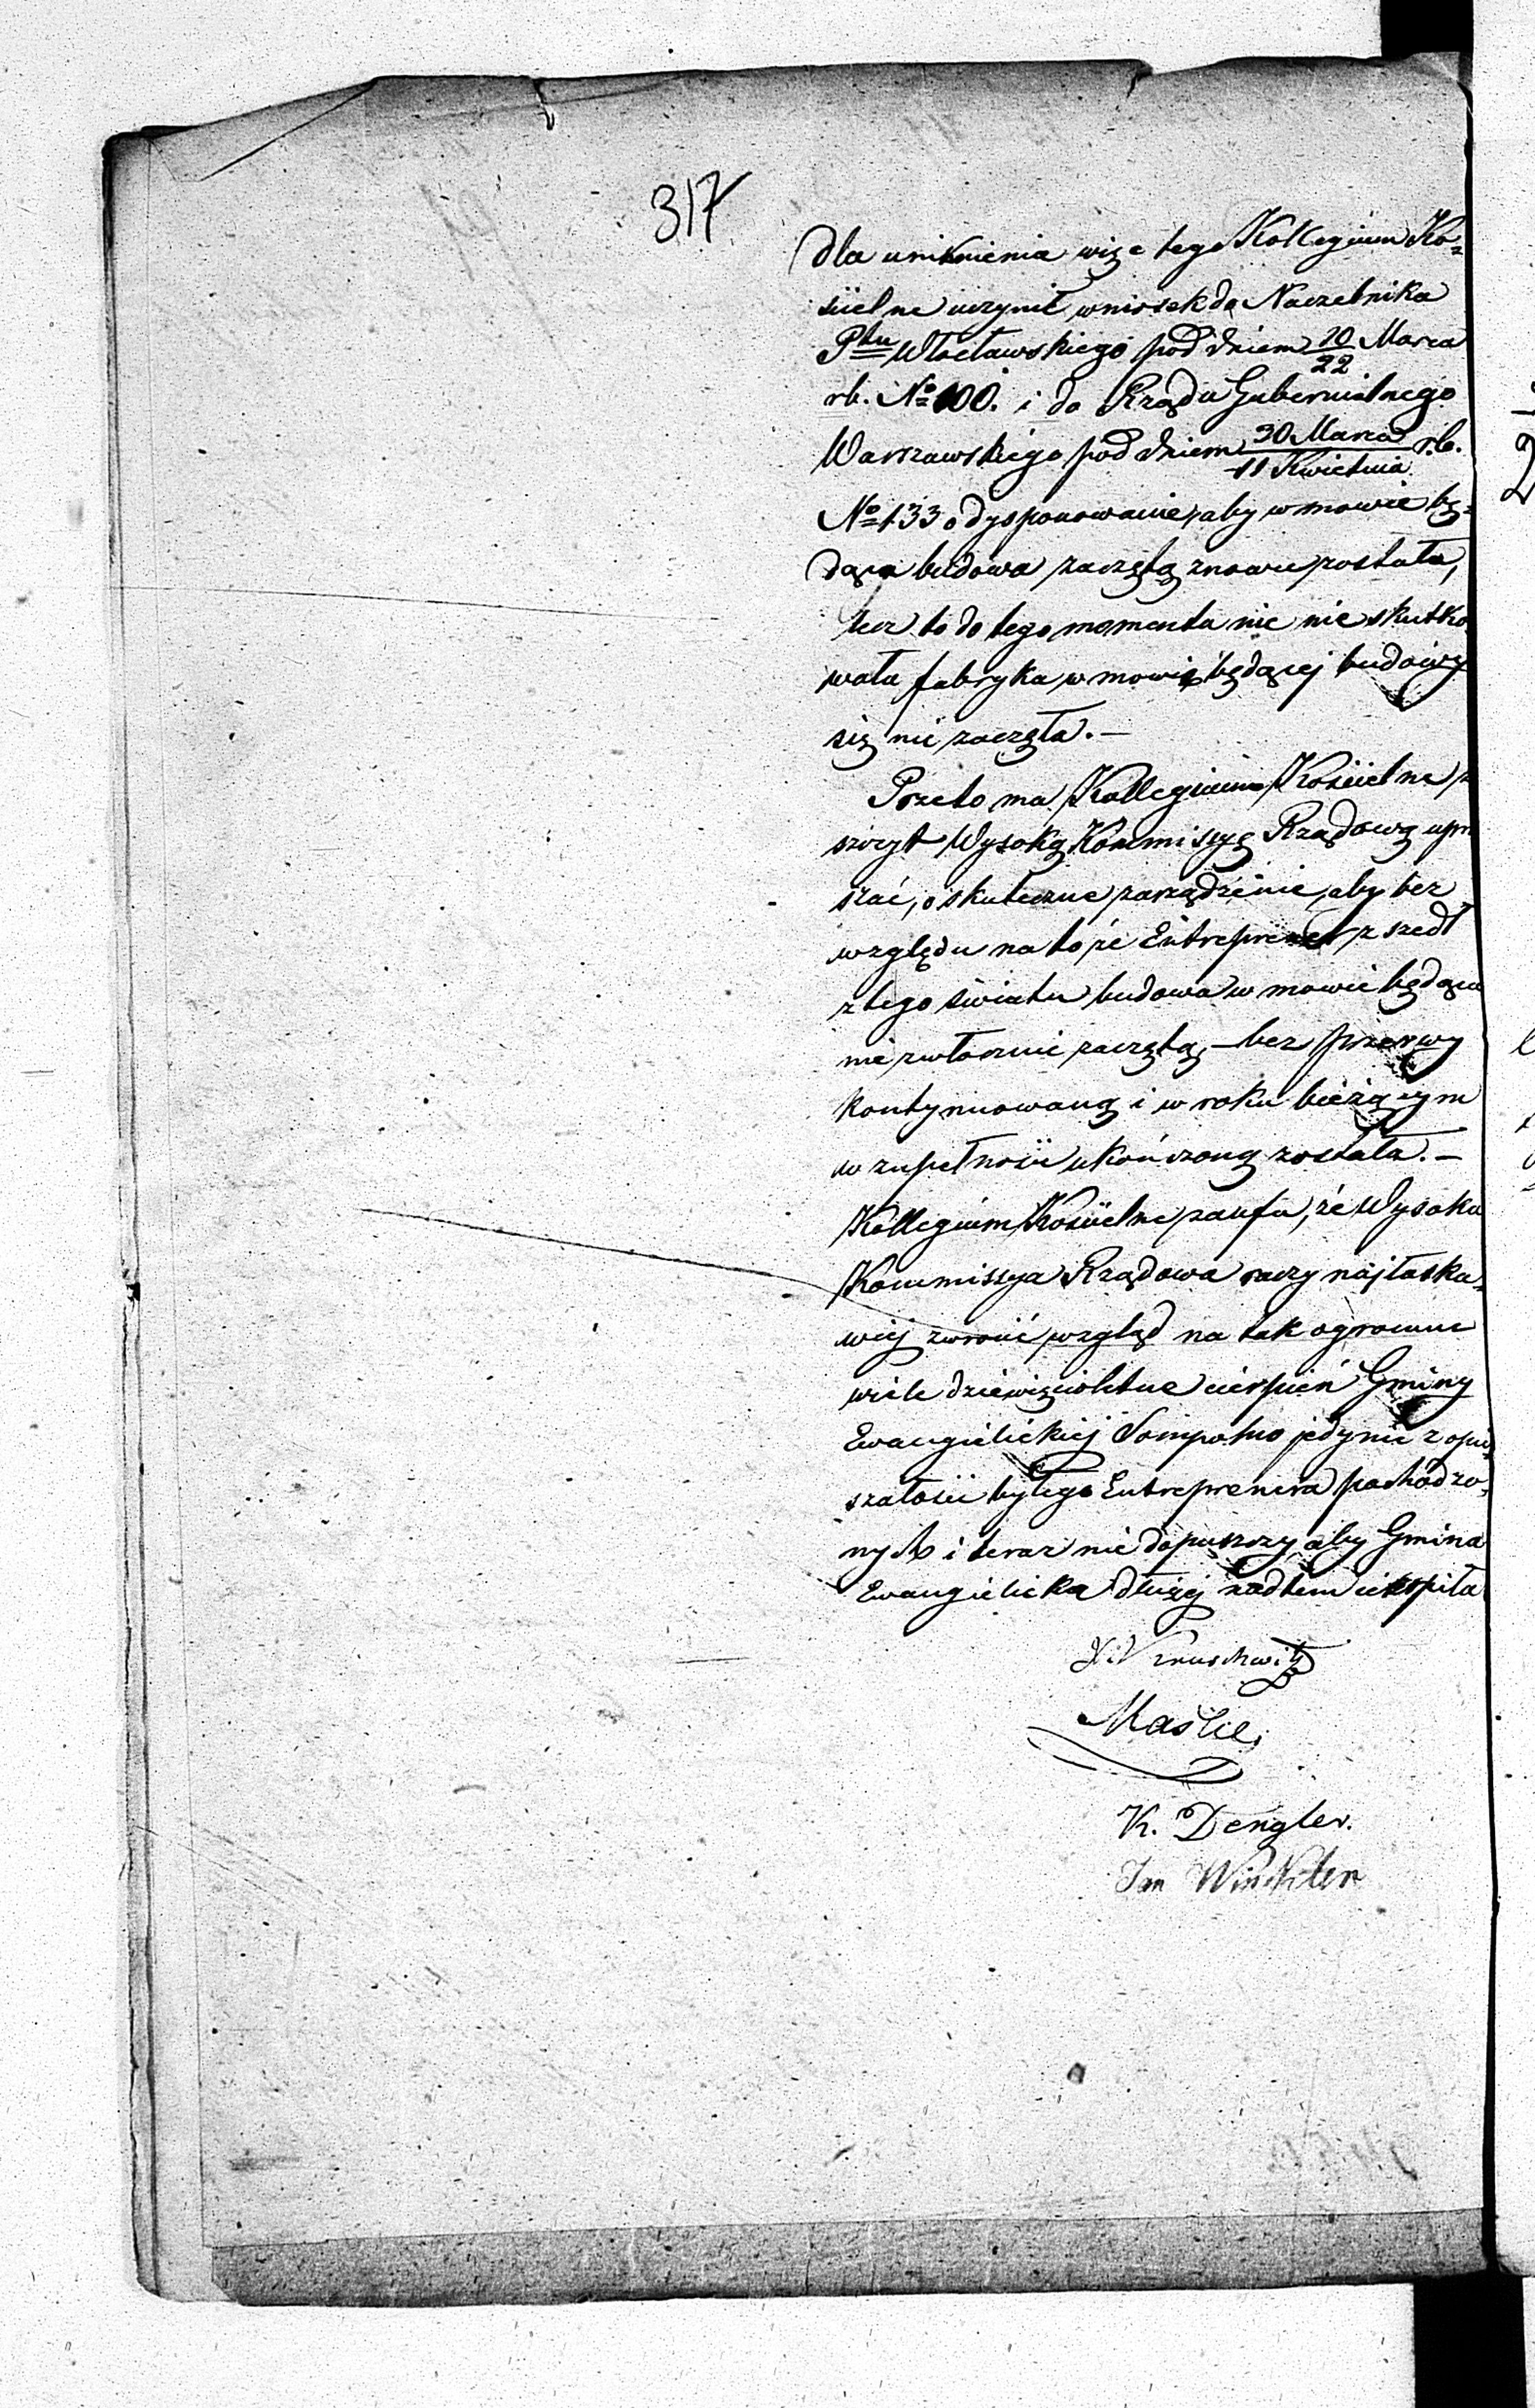 317
dla uniknienia więc tego Kollegium Ko-
ścielne uczynił wniosek do Naczelnika
Ptu Włocławskiego pod dniem 10/22 Marca
rb. No 100. i do Rządu Gubernialnego
Warszawskiego pod dniem 30 Marca/11 Kwietnia r.b.
No 133 o dysponowanie, aby w mowie bę-
dąca budowa zaczętą znowu została,
lecz to do tego momentu nic nie skutko
wała fabryka w mowie będącej budowy
się nie zaczęła. —
Przeto ma Kollegium Kościelne
szczyt Wysoką Kommissyę Rządową upra
szać, o skuteczne zarządzenie, aby bez
względu na to że Entreprener zszedł
z tego świata budowa w mowie będąca
nie zwłocznie zaczętą, — bez przerwy
kontynuowaną i w roku bieżącym
w zupełności ukończoną została. —
Kollegium Kościelne zaufa, że Wysoka
Kommissya Rządowa raczy najłaska-
wiej zwrócić wzgląd na tak ogromne
wiele dziewięcioletne cierpień Gminy
Ewangielickiej Sompolno jedynie z opie
szałości byłego Entreprenera pochodzo-
nych i teraz nie dopuszczy, aby Gmina
Ewangielicka dłużej nadtem cierpiła
Maske
K. Dengler.
Jan Winckler